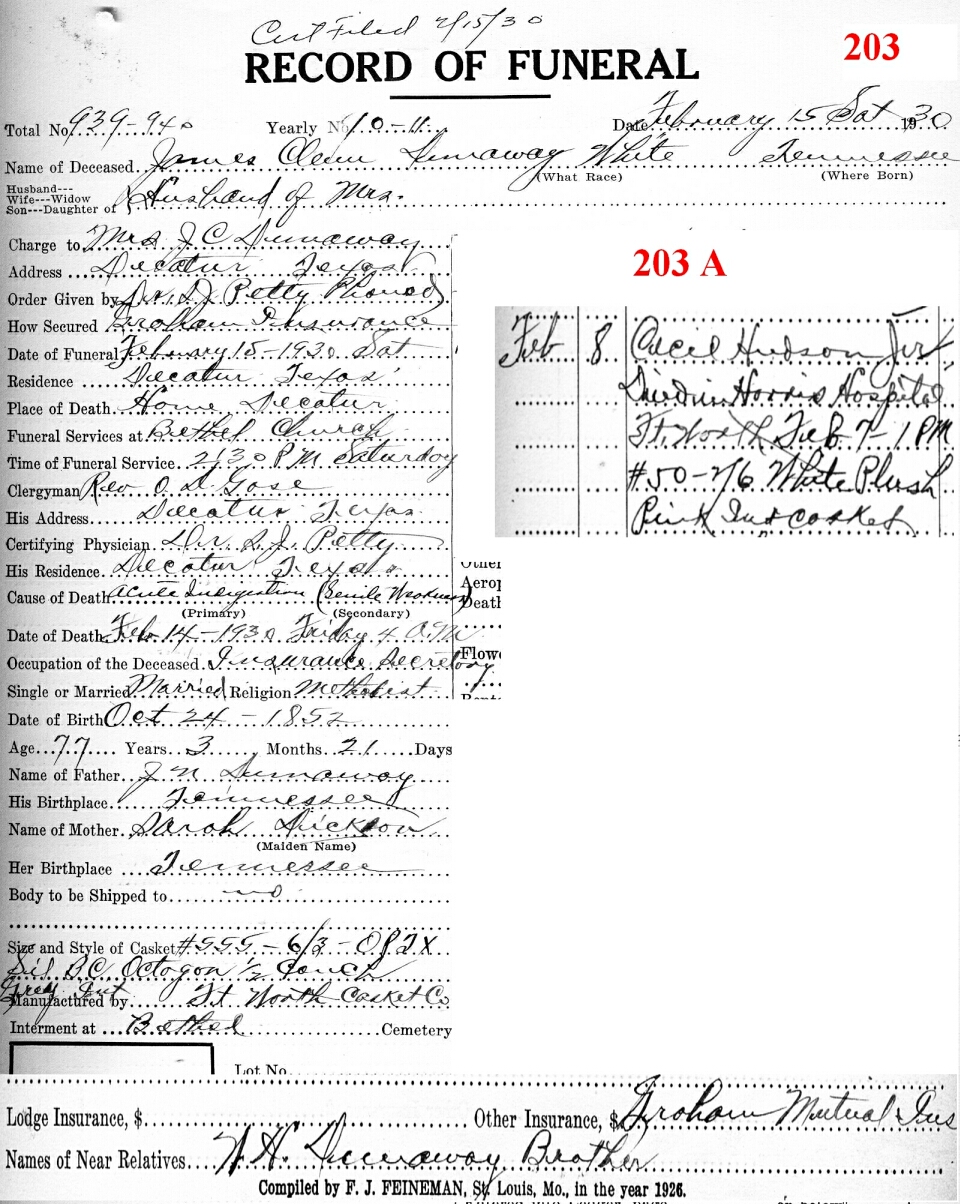 Cert Filed 2/15/30
203
RECORD OF FUNERAL
Total No. 939-940 Yearly No. 10-11 Date February 15 Sat 1930
Name of Deceased James Clenn Dunaway White Tennessee
(What Race) (Where Born)
Husband---
Wife---Widow
Son---Daughter of Husband of Mrs.
Charge to Mrs J C Dunaway
Address Decatur Texas
Order Given by Dr. S J Petty Phoned
How Secured Graham Insurance
Date of Funeral February 15-1930 Sat
Residence Decatur Texas
Place of Death Home Decatur
Funeral Services at Bethel Church
Time of Funeral Service 2:30 PM Saturday
Clergyman Rev O. D. Gose
His Address Decatur Texas
Certifying Physician Dr. S. J. Petty
His Residence Decatur Texas
Cause of Death Acute Indigestion (Senile Weakness)
(Primary) (Secondary)
Date of Death Feb 14-1930 Friday 4 A.M
Occupation of the Deceased Insurance Secretary
Single or Married Married Religion Methodist
Date of Birth Oct 24 - 1852
Age 77 Years 3 Months 21 Days
Name of Father J N Dunaway
His Birthplace Tennessee
Name of Mother Sarah Dickson
(Maiden Name)
Her Birthplace Tennessee
Body to be Shipped to no
Size and Style of Casket #555-6/3-
Sil B.C. Octogon 1/2 Couch
Grey Int
Manufactured by Ft Worth Casket Co
Interment at Bethel Cemetery
Lot No.
203 A
Feb 8 Cecil Hudson
Died in Harris Hospital
Ft. Worth Feb 7-1 PM
#50-2/6 White Plush
Pink Int casket
Other
Aerop
Death
Flowe
Lodge Insurance, $ Other Insurance, $ Graham Mutual Ins
Names of Near Relatives W. H. Dunaway Brother
Compiled by F. J. FEINEMAN, St. Louis, Mo., in the year 1926.